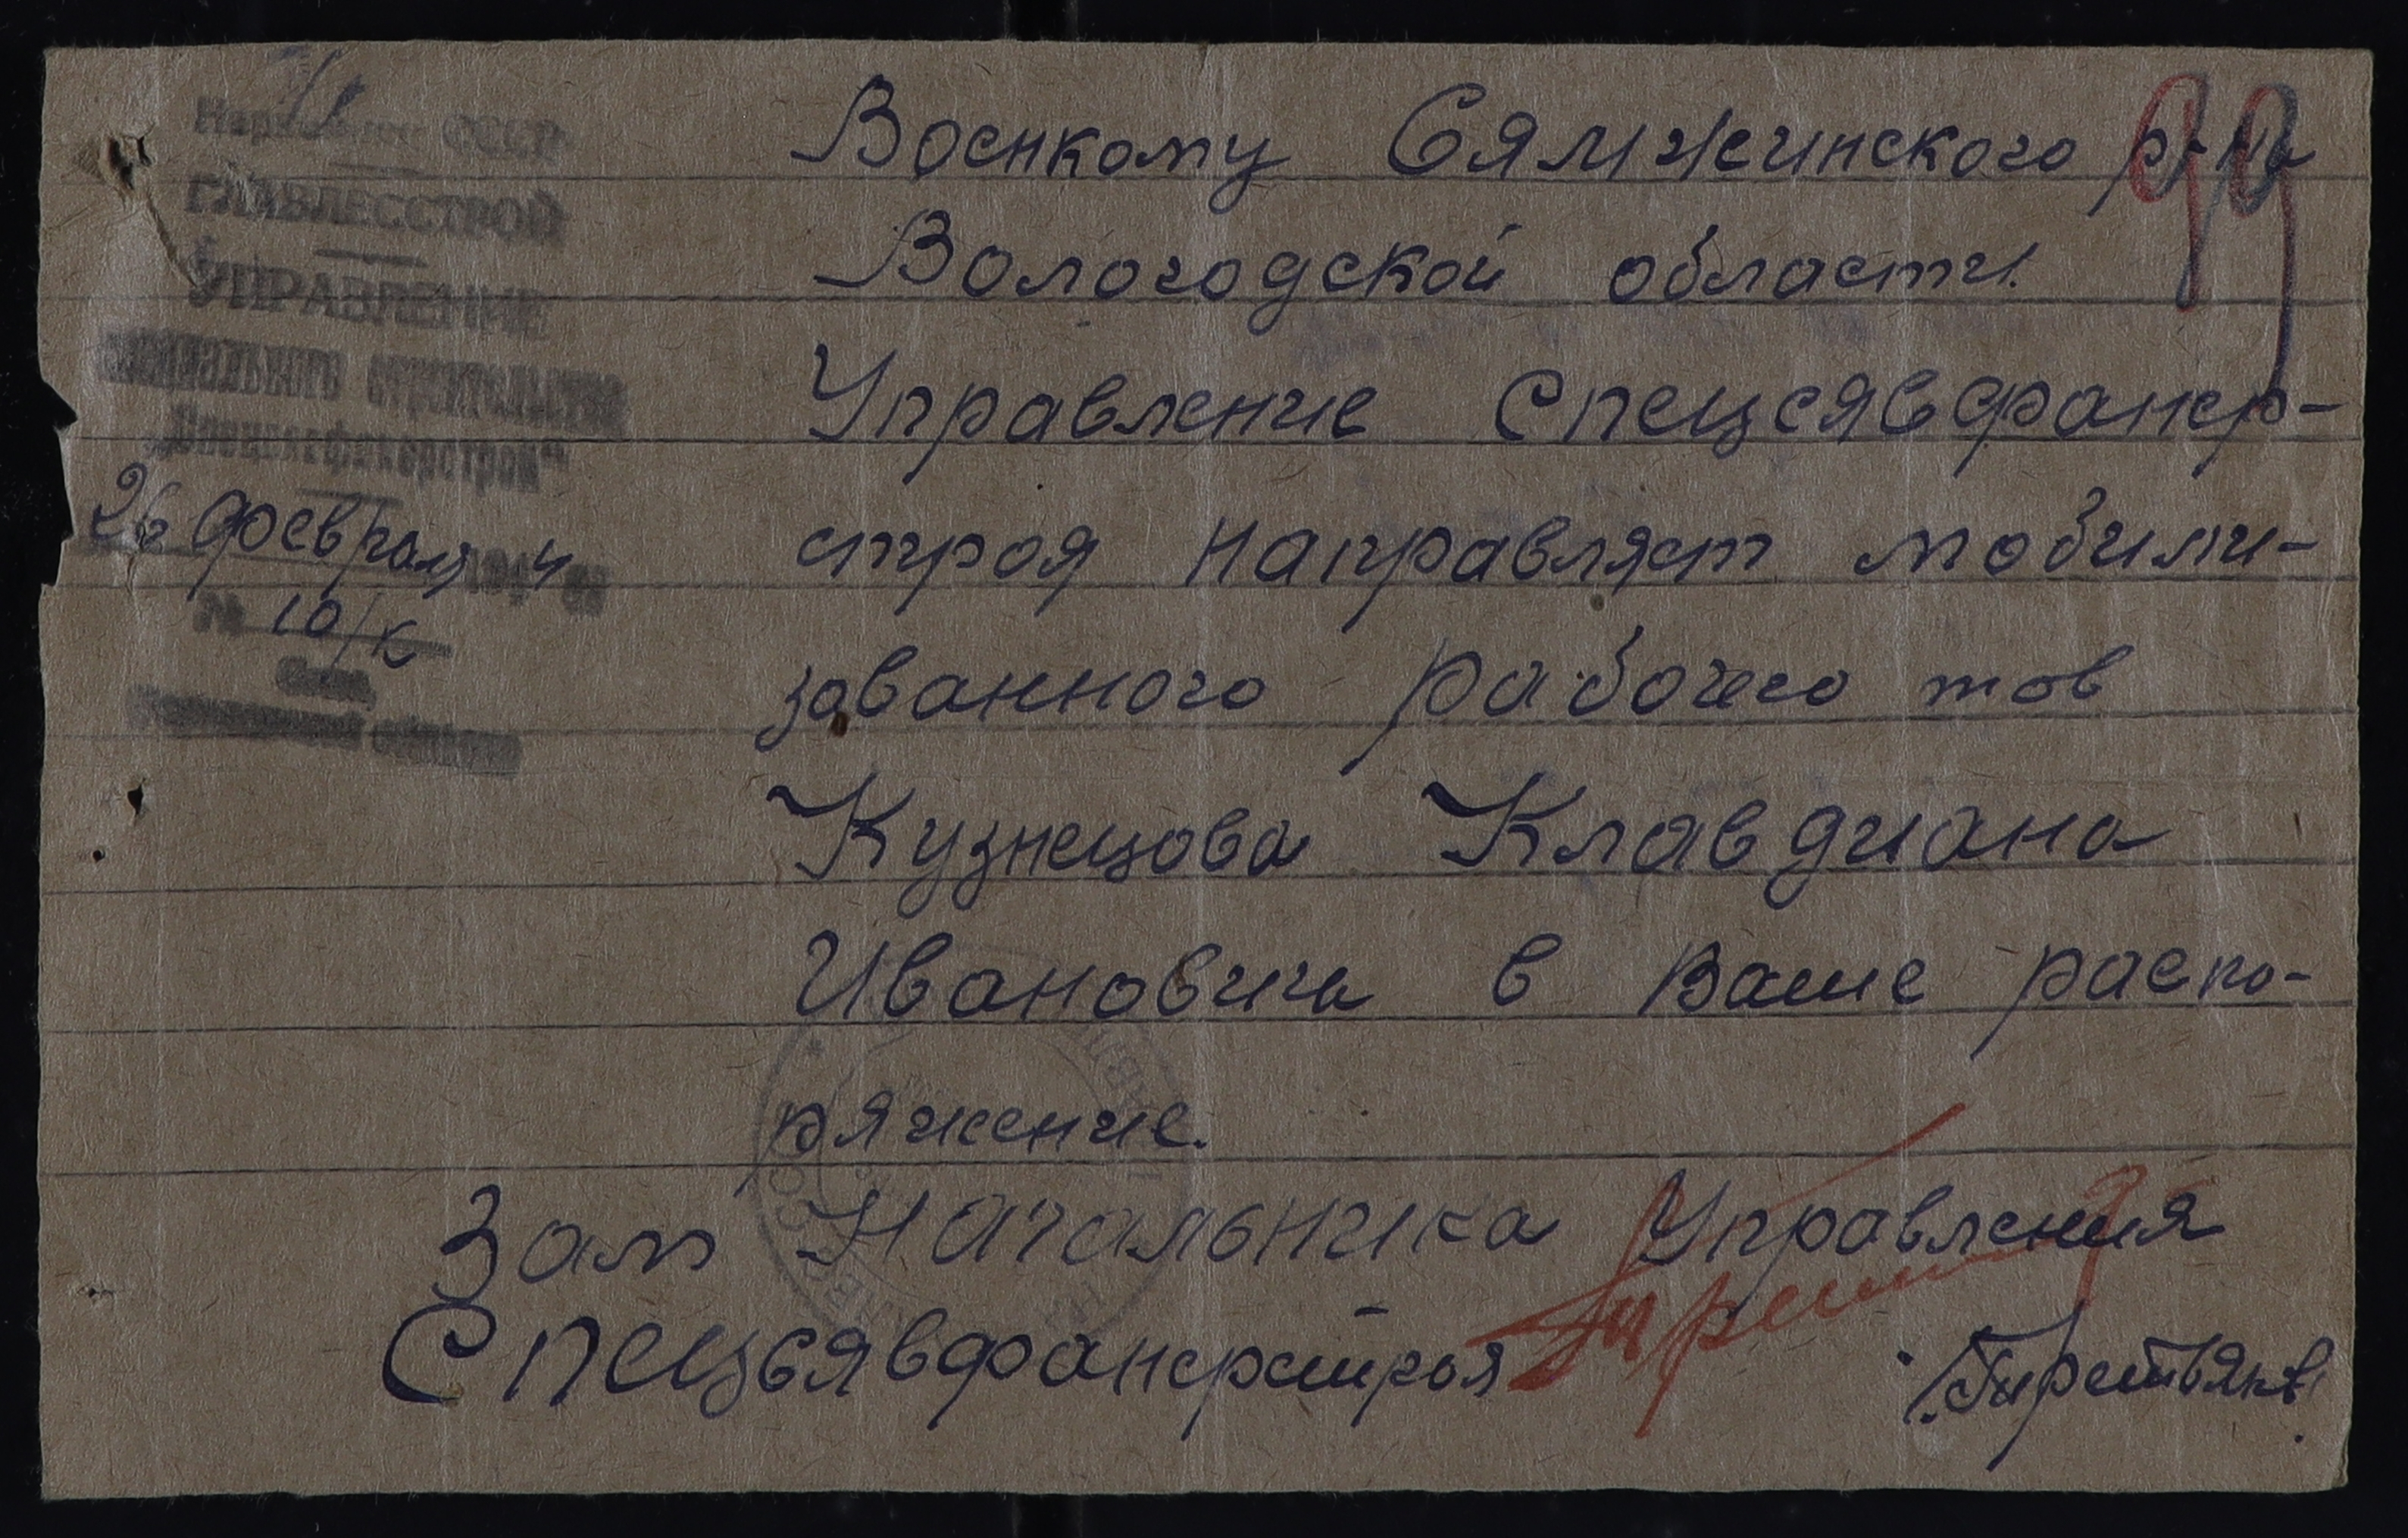 СССР
ГЛАВЛЕССТРОЙ
УПРАВЛЕНИЕ
строительства
26 февраля
№ 10/к
99
Военкому Сямжинского р-на
Вологодской области.
Управление Спецсявфанер-
строя направляет мобили-
зованного рабочего тов
Кузнецова Клавдиана
Ивановича в Ваше распо-
ряжение.
Зам Начальника Управления
Спецсявфанерстроя
/Третьяков/